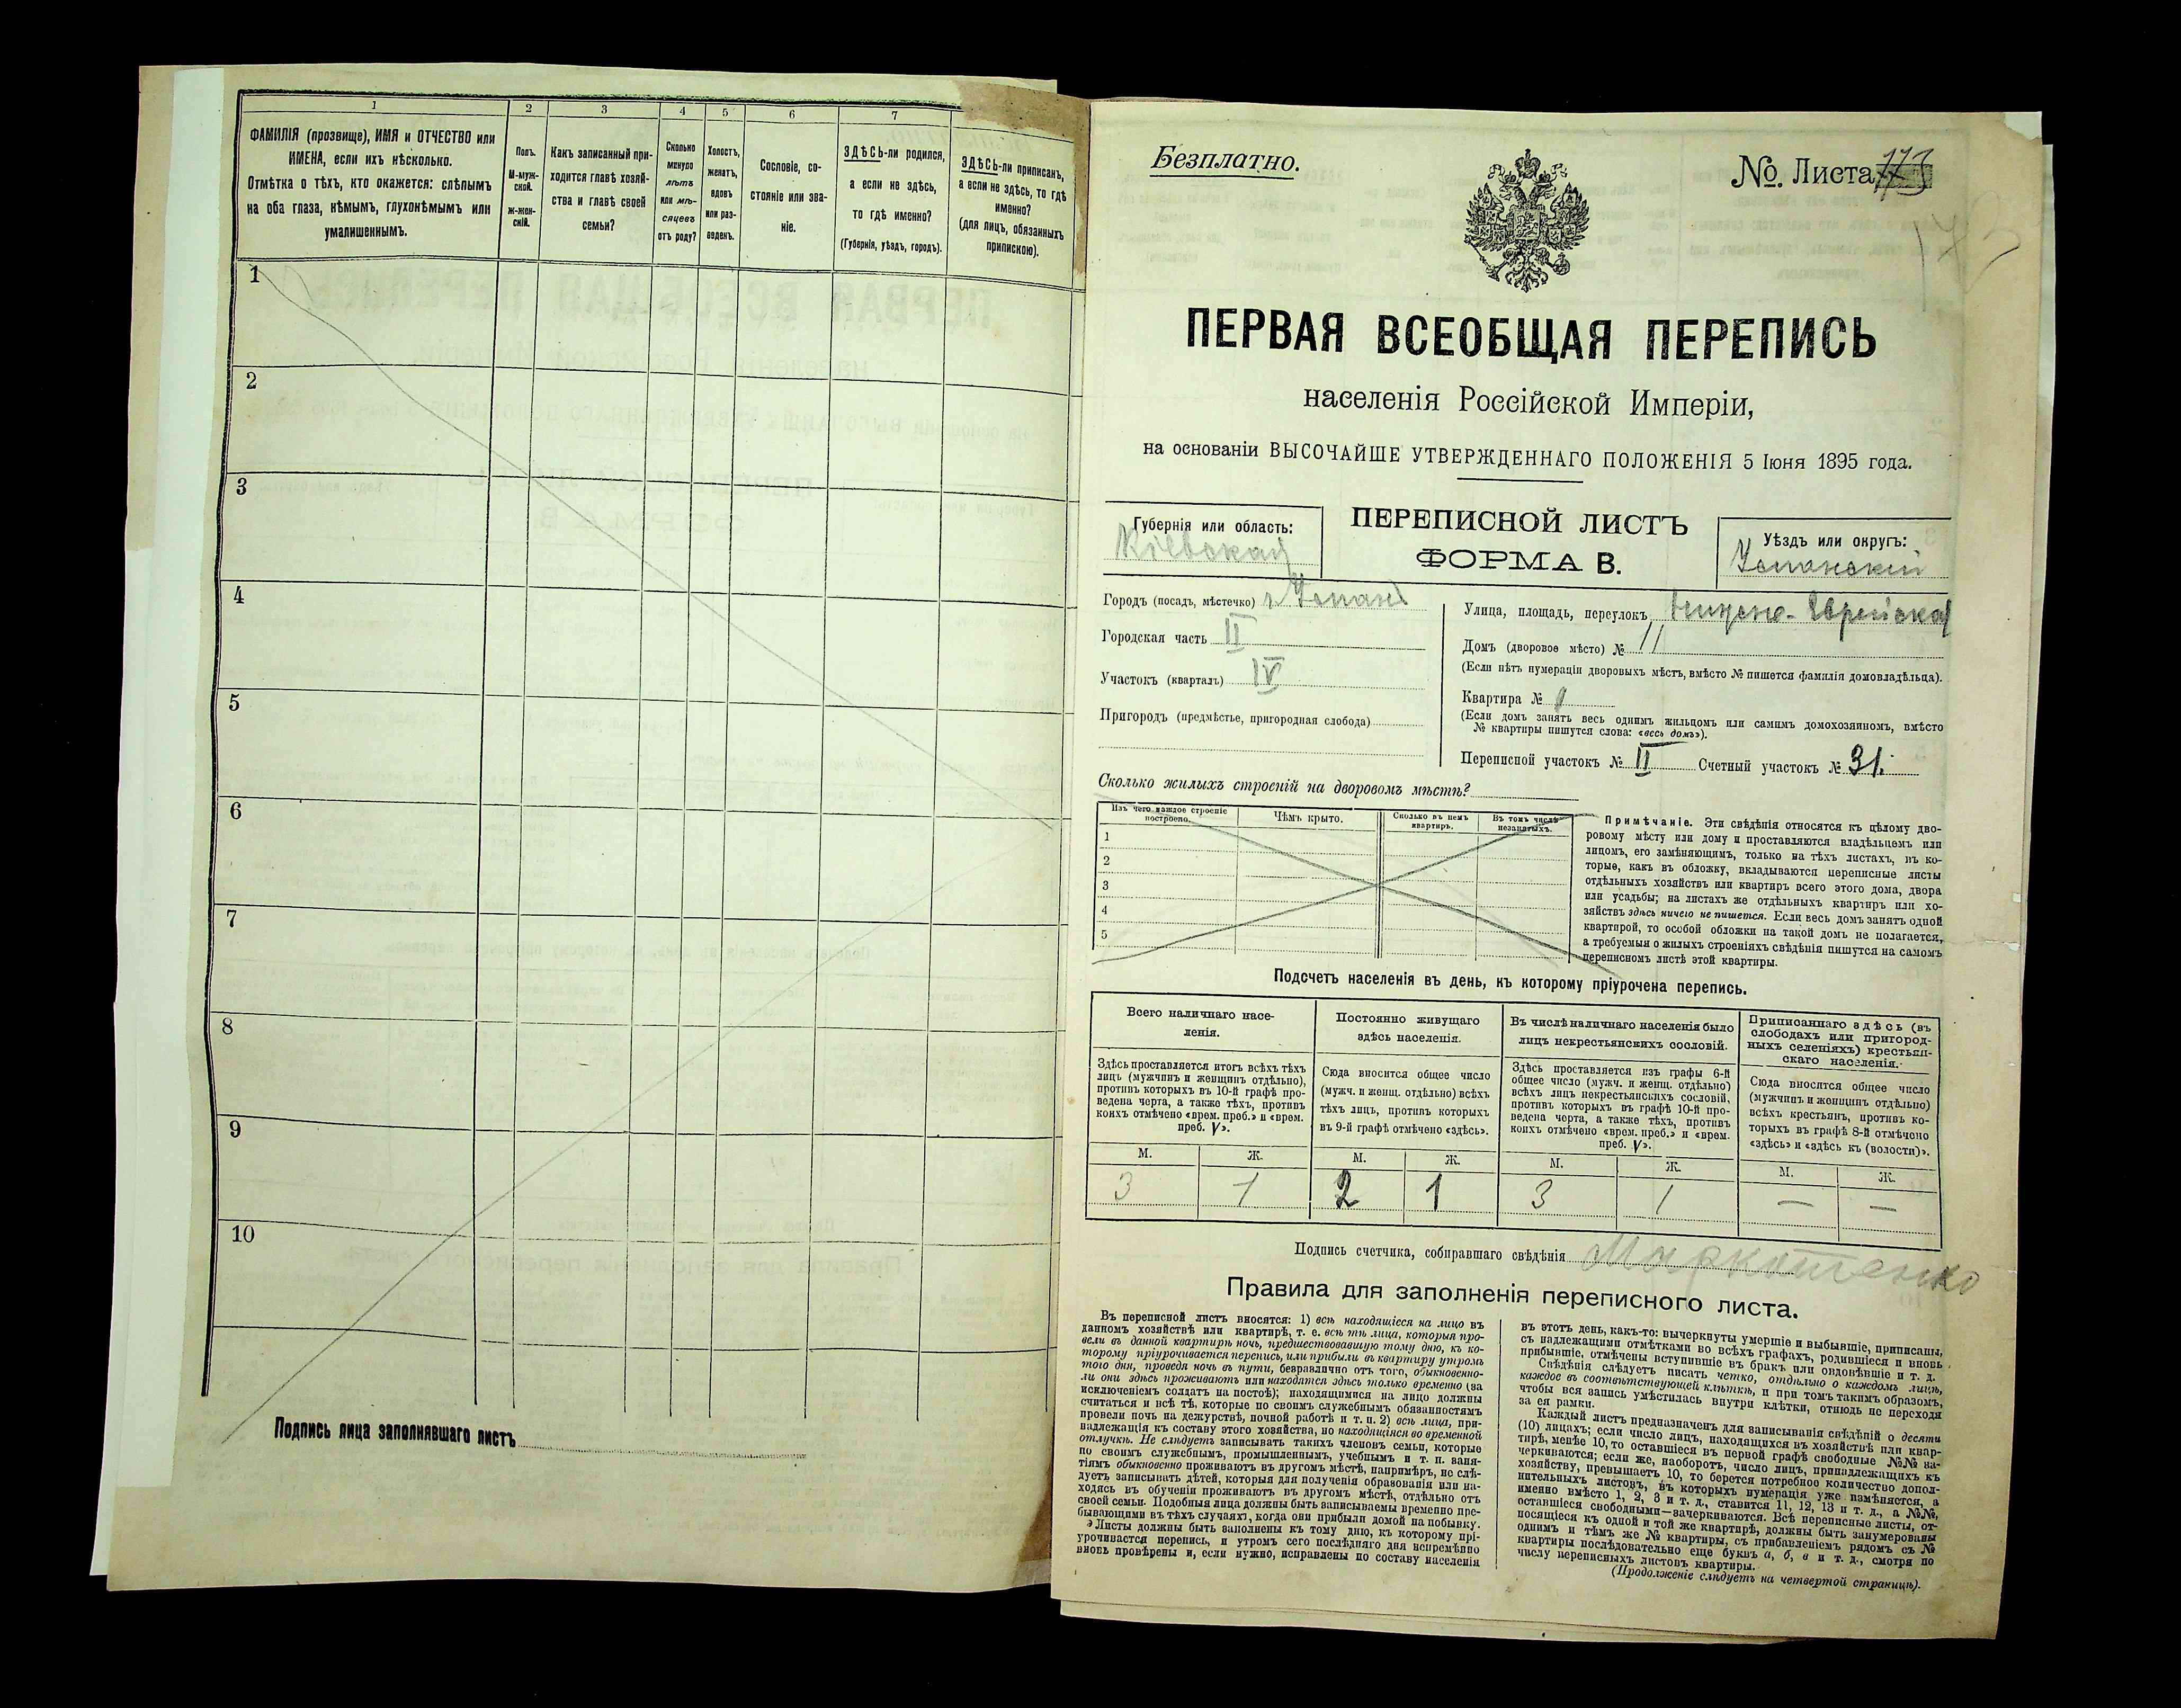 1
ФАМИЛІЯ (прозвище), ИМЯ и ОТЧЕСТВО или
ИМЕНА, если ихъ нѣсколько.
Отмѣтка о тѣхъ, кто окажется: слѣпымъ
на оба глаза, нѣмымъ, глухонѣмымъ или
умалишеннымъ.
2
Полъ.
М-муж-
ской.
Ж-жен-
скій.
3
Какъ записанный при-
ходится главѣ хозяй-
ства и главѣ своей
семьи?
4
Сколько
минуло
лѣтъ
или мѣ-
сяцевъ
отъ роду?
5
Холостъ,
женатъ,
вдовъ
или раз-
веденъ.
6
Сословіе, со-
стояніе или зва-
ніе.
7
ЗДѢСЬ-ли родился,
а если не здѣсь,
то гдѣ именно?
(Губернія, уѣздъ, городъ).
ЗДѢСЬ-ли приписанъ,
а если не здѣсь, то гдѣ
именно?
(для лицъ, обязанныхъ
припискою).
1
2
3
4
5
6
7
8
9
10
Подпись лица заполнявшаго листъ
Безплатно.
№. Листа 173
ПЕРВАЯ ВСЕОБЩАЯ ПЕРЕПИСЬ
населенія Россійской Имперіи,
на основаніи ВЫСОЧАЙШЕ УТВЕРЖДЕННАГО ПОЛОЖЕНІЯ 5 Іюня 1895 года.
Губернія или область:
Кіевская
ПЕРЕПИСНОЙ ЛИСТЪ
ФОРМА В.
Уѣздъ или округъ:
Уманскій
Городъ (посадъ, мѣстечко) г. Умань
Городская часть II
Участокъ (кварталъ) IV
Пригородъ (предмѣстье, пригородная слобода)
Улица, площадь, переулокъ Нижне-Еврейская
Домъ (дворовое мѣсто) № 11
(Если нѣтъ нумераціи дворовыхъ мѣстъ, вмѣсто № пишется фамилія домовладѣльца).
Квартира №
(Если домъ занятъ весь однимъ жильцомъ или самимъ домохозяиномъ, вмѣсто
№ квартиры пишутся слова: «весь домъ»).
Переписной участокъ № II Счетный участокъ № 31.
Сколько жилыхъ строеній на дворовомъ мѣстѣ?
Изъ чего каждое строеніе
построено.
Чѣмъ крыто.
Сколько въ немъ
квартиръ.
Въ томъ числѣ
незанятыхъ.
1
2
3
4
5
Примѣчаніе. Эти свѣдѣнія относятся къ цѣлому дво-
ровому мѣсту или дому и проставляются владѣльцемъ или
лицомъ, его замѣняющимъ, только на тѣхъ листахъ, въ ко-
торые, какъ въ обложку, вкладываются переписные листы
отдѣльныхъ хозяйствъ или квартиръ всего этого дома, двора
или усадьбы; на листахъ же отдѣльныхъ квартиръ или хо-
зяйствъ здѣсь ничего не пишется. Если весь домъ занятъ одной
квартирой, то особой обложки на такой домъ не полагается,
а требуемыя о жилыхъ строеніяхъ свѣдѣнія пишутся на самомъ
переписномъ листѣ этой квартиры.
Подсчетъ населенія въ день, къ которому пріурочена перепись.
Всего наличнаго насе-
ленія.
Здѣсь проставляется итогъ всѣхъ тѣхъ
лицъ (мужчинъ и женщинъ отдѣльно),
противъ которыхъ въ 10-й графѣ про-
ведена черта, а также тѣхъ, противъ
коихъ отмѣчено «врем. преб.» и «врем.
преб. V».
Постоянно живущаго
здѣсь населенія.
Сюда вносится общее число
(мужч. и женщ. отдѣльно) всѣхъ
тѣхъ лицъ, противъ которыхъ
въ 9-й графѣ отмѣчено «здѣсь».
Въ числѣ наличнаго населенія было
лицъ некрестьянскихъ сословій.
Здѣсь проставляется изъ графы 6-й
общее число (мужч. и женщ. отдѣльно)
всѣхъ лицъ некрестьянскихъ сословій,
противъ которыхъ въ графѣ 10-й про-
ведена черта, а также тѣхъ, противъ
коихъ отмѣчено «врем. преб.» и «врем.
преб. V».
Приписаннаго здѣсь (въ
слободахъ или пригород-
ныхъ селеніяхъ) крестьян-
скаго населенія.
Сюда вносится общее число
(мужчинъ и женщинъ отдѣльно)
всѣхъ крестьянъ, противъ ко-
торыхъ въ графѣ 8-й отмѣчено
«здѣсь» и «здѣсь къ (волости)».
М. Ж. М. Ж. М. Ж. М. Ж.
3 1 2 1 3 1 — —
Подпись счетчика, собиравшаго свѣдѣнія Маркотенко
Правила для заполненія переписного листа.
Въ переписной листъ вносятся: 1) всѣ находящіеся на лицо въ
данномъ хозяйствѣ или квартирѣ, т. е. всѣ тѣ лица, которыя про-
вели въ данной квартирѣ ночь, предшествовавшую тому дню, къ ко-
торому пріурочивается перепись, или прибыли въ квартиру утромъ
того дня, проведя ночь въ пути, безразлично отъ того, обыкновенно-
ли они здѣсь проживаютъ или находятся здѣсь только временно (за
исключеніемъ солдатъ на постоѣ); находящимися на лицо должны
считаться и всѣ тѣ, которые по своимъ служебнымъ обязанностямъ
провели ночь на дежурствѣ, ночной работѣ и т. п. 2) всѣ лица, при-
надлежащія къ составу этого хозяйства, но находящіяся во временной
отлучкѣ. Не слѣдуетъ записывать такихъ членовъ семьи, которые
по своимъ служебнымъ, промышленнымъ, учебнымъ и т. п. заня-
тіямъ обыкновенно проживаютъ въ другомъ мѣстѣ, напримѣръ, не слѣ-
дуетъ записывать дѣтей, которыя для полученія образованія или на-
ходясь въ обученіи проживаютъ въ другомъ мѣстѣ, отдѣльно отъ
своей семьи. Подобныя лица должны быть записываемы временно пре-
бывающими въ тѣхъ случаяхъ, когда они прибыли домой на побывку.
Листы должны быть заполнены къ тому дню, къ которому прі-
урочивается перепись, и утромъ сего послѣдняго дня непремѣнно
вновь провѣрены и, если нужно, исправлены по составу населенія
въ этотъ день, какъ-то: вычеркнуты умершіе и выбывшіе, приписаны,
съ надлежащими отмѣтками во всѣхъ графахъ, родившіеся и вновь
прибывшіе, отмѣчены вступившіе въ бракъ или овдовѣвшіе и т. д.
Свѣдѣнія слѣдуетъ писать четко, отдѣльно о каждомъ лицѣ,
каждое въ соотвѣтствующей клѣткѣ, и при томъ такимъ образомъ,
чтобы вся запись умѣстилась внутри клѣтки, отнюдь не переходя
за ея рамки.
Каждый листъ предназначенъ для записыванія свѣдѣній о десяти
(10) лицахъ; если число лицъ, находящихся въ хозяйствѣ или квар-
тирѣ, менѣе 10, то оставшіеся въ первой графѣ свободные №№ за-
черкиваются; если же, наоборотъ, число лицъ, принадлежащихъ къ
хозяйству, превышаетъ 10, то берется потребное количество допол-
нительныхъ листовъ, въ которыхъ нумерація уже измѣняется, а
именно вмѣсто 1, 2, 3 и т. д., ставится 11, 12, 13 и т. д., а №№,
оставшіеся свободными—зачеркиваются. Всѣ переписные листы, от-
носящіеся къ одной и той же квартирѣ, должны быть занумерованы
однимъ и тѣмъ же № квартиры, съ прибавленіемъ рядомъ съ №
квартиры послѣдовательно еще буквъ а, б, в и т. д., смотря по
числу переписныхъ листовъ квартиры.
(Продолженіе слѣдуетъ на четвертой страницѣ).